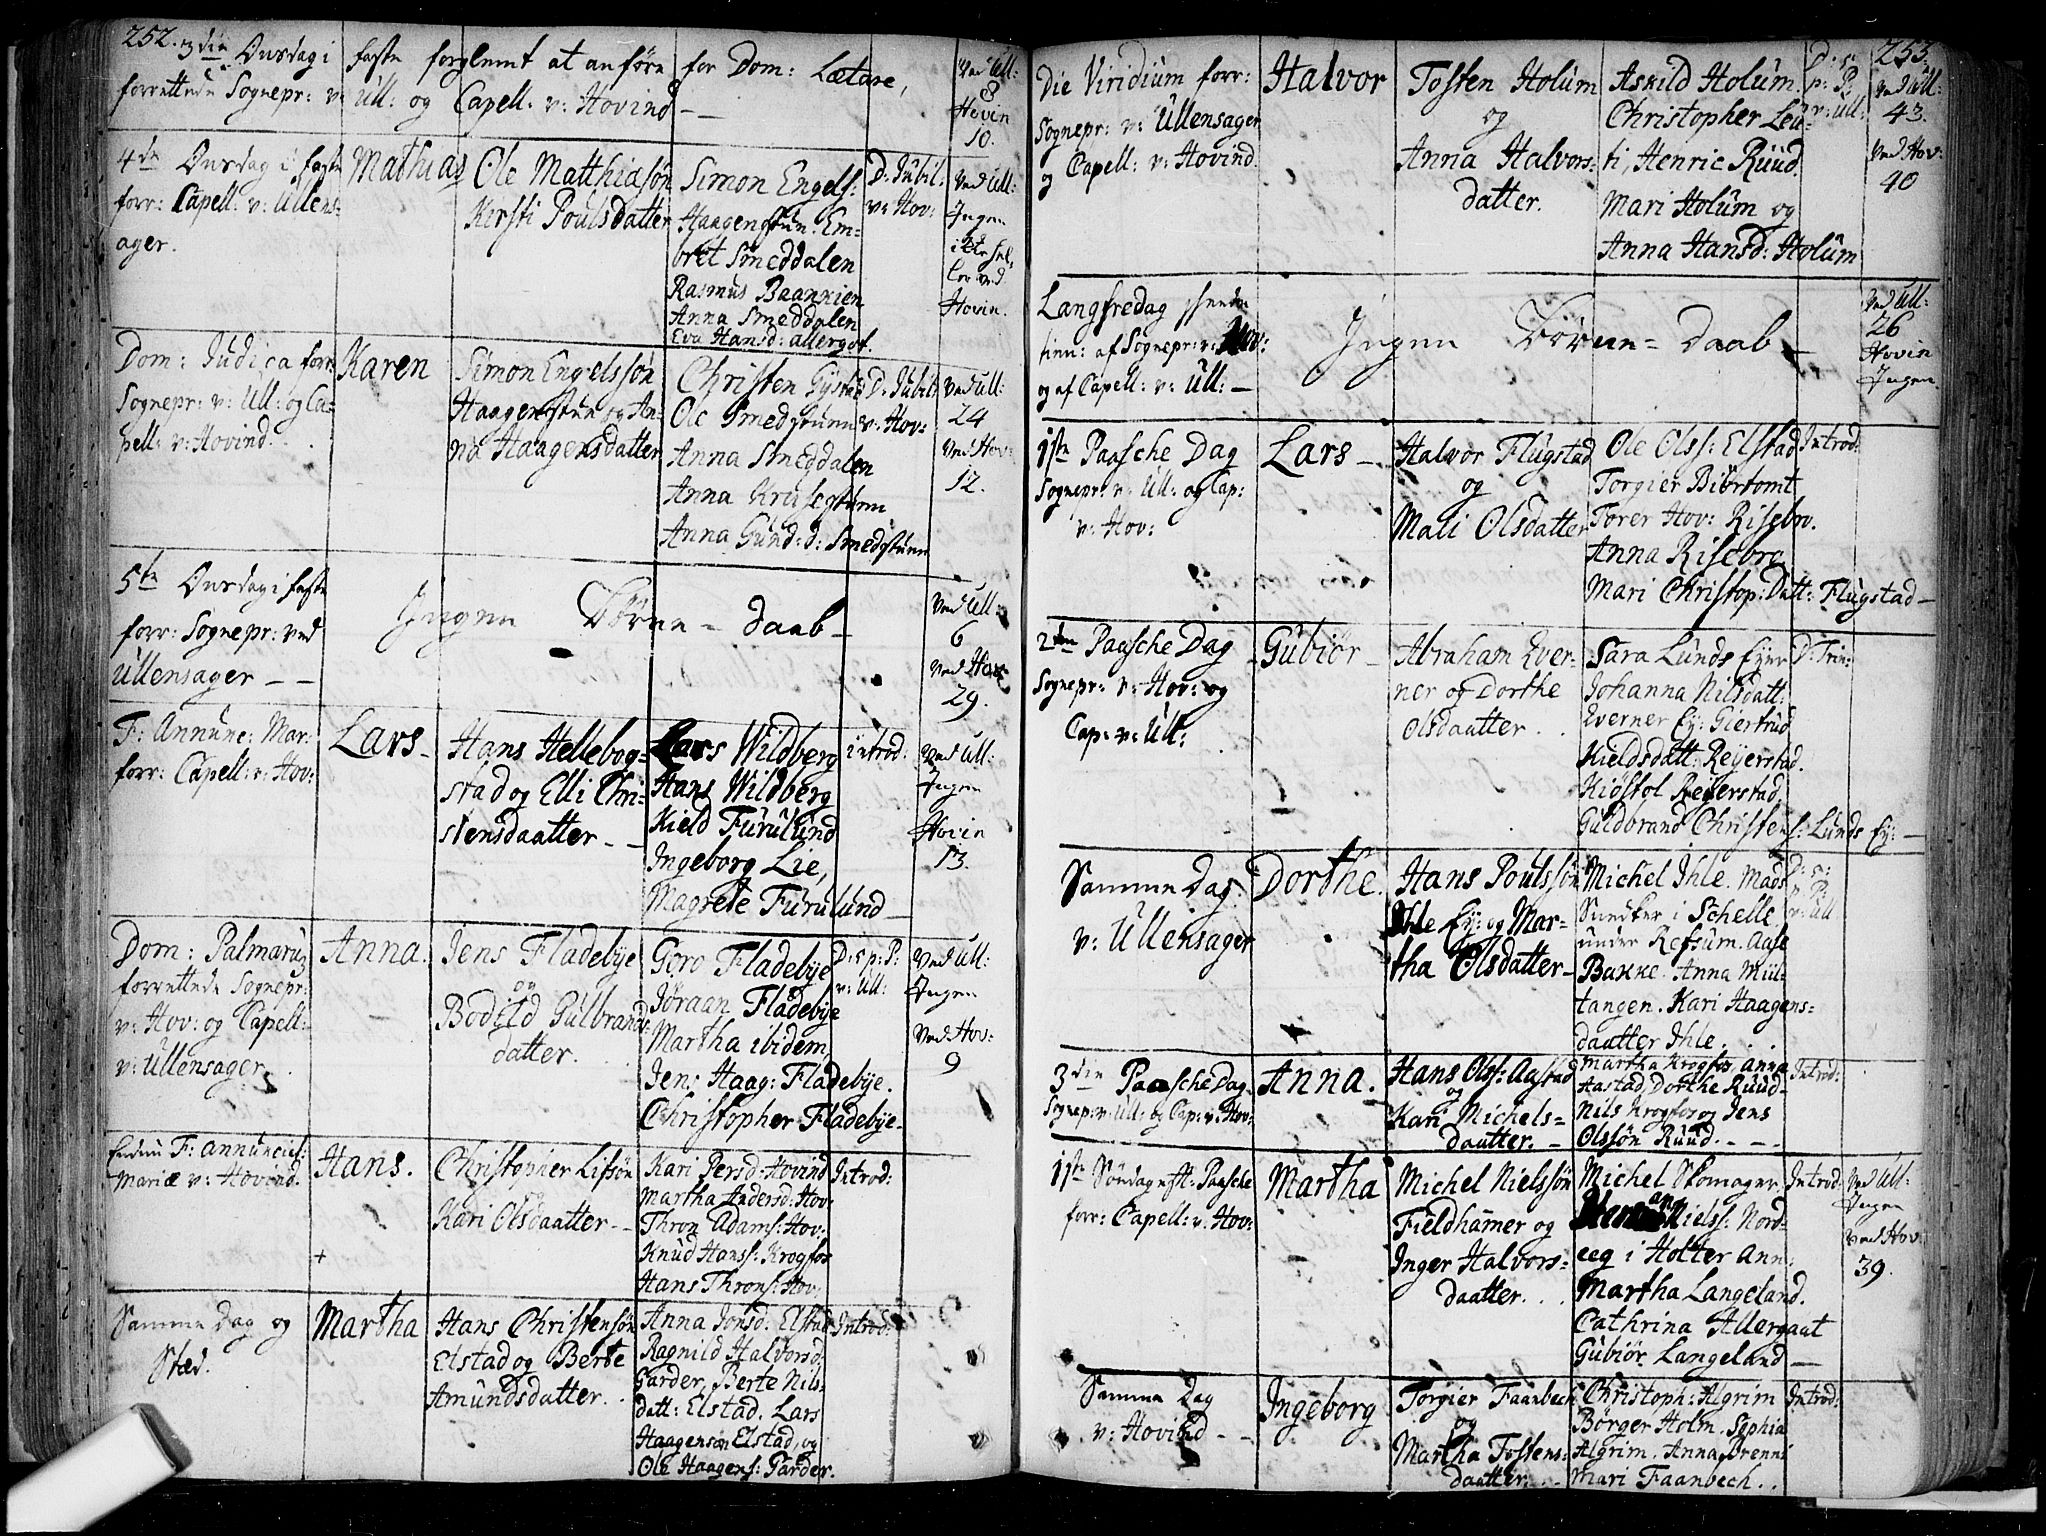 252.
3die Onsdag i faste forglemt at anföre for Dom: Lætare,
forrettede Sognepr: v: Ull: og Capell: v: Hovind — —
Ved Ull:
8
Hovin
10.
4de Onsdag i faste
forr: Capell: v: Ullens=
ager.
Mathias
Ole Matthiasøn
Kirsti Poulsdatter
Simon Engels:
Haagenstun. Em=
bret Smeddalen
Rasmus Baankien
Anna Smeddalen
Eva Hansd: allergot.
D: Jubil:
v: Hov:
Ved Ull:
Ingen
ved
Hovin.
Dom: Judica forr:
Sognepr: v: Ull: og Ca=
pell: v: Hovind.
Karen
Simon Engelssøn
Haagenstun og An=
na Haagensdatter
Christen Gystad
Ole Smedstuen
Anna Smeddalen
Anna Krusestuen
Anna Gund: d: Smedstuen
D: Jubil:
v: Hov:
Ved Ull:
24
Ved Hov:
12.
5te Onsdag i faste
forr: Sognepr: ved
Ullensager — —
Ingen Börne = daab —
Ved Ull:
6
Ved Hov:
29.
F: Annunc: Mar:
forr: Capell: v: Hov:
Lars —
Hans Hellebog=
stad og Elli Chri=
stensdaatter — —
Lars Wildberg
Hans Wildberg
Kield Furulund
Ingeborg Lie,
Magrete Furulund —
introd:
Ved Ull:
Ingen
Hovin
13.
Dom: Palmarum
forrettede Sognepr:
v: Hov: og Capell:
v: Ullensager.
Anna.
Jens Fladebye
og
Bodild Gulbrand=
datter.
Goro Fladebye
Jöraan Fladebye
Martha ibidem,
Jens Haag: Fladebye.
Christopher Fladebye.
D: s: p: P:
v: Ull:
Ved Ull:
Ingen
Ved Hov:
9
Eadem F: annunciat:
Mariæ v: Hovind.
Hans.
+
Christopher Lifsøn
og
Kari Olsdaatter —
Kari Persd: Hovind
Martha Andersd: Hov:
Thron Adams: Hov:
Knud Hans: Krogfos
Hans Throns: Hov:
Introd:
Samme Dag og
Sted.
Martha
Hans Christensøn
Elstad og Berte
Amundsdatter.
Anna Jonsd: Elstad
Ragnild Halvorsd:
Garder, Berte Nils=
datt: Elstad. Lars
Haagensøn Elstad, og
Ole Haagens: Garder.
Introd:
253.
Die Viridium forr:
Sognepr: v: Ullensager
og Capell: v: Hovind.
Halvor
Tosten Holum
og
Anna Halvors=
datter.
Askild Holum.
Christopher Leu=
ti, Henric Ruud.
Mari Holum og
Anna Hansd: Holum
D: s:
p: P:
v: Ull:
Ved Ull:
43.
Ved Hov:
40
Langfredag
tien: af Sognepr: v: Hov:
og af Capell: v: Ull: —
Ingen Börne = daab —
Ved Ull:
26
Hovin
Ingen
1ste Paasche Dag
Sognepr: v: Ull: og Cap:
v: Hov:
Lars —
Halvor Flugstad
og
Mali Olsdatter
Ole Olss: Elstad
Torgier Biörtomt
Torer Hov: Risebro.
Anna Risebro
Mari Christop: Datt: Flugstad —
Introd:
2den Paasche Dag
Sognepr: v: Hov: og
Cap: v: Ull:
Gubiör —
Abraham Ever=
ner og Dorthe
Olsdaatter.
Sara Lunds Eyer
Johanna Nilsdatt:
Everner Ey: Giertrud
Kieldsdatt: Reyerstad.
Kiöstol Reyerstad,
Guldbrand Christens: Lunds Ey: —
D: Trin:
Samme Dag
v: Ullensager
Dorthe.
Hans Poulssøn
Ihle Ey: og Mar=
tha Olsdatter —
Michel Ihle. Mads
Sundker i Schelle
under Refsum. Aase
Bakke. Anna Mül=
tangen. Kari Haagens=
daatter Ihle.
D: s:
p: P:
v: Ull
3die Paasche Dag
Sognep: v: Ull: og Cap: v: Hov:
Anna.
Hans Olss: Aastad
og
Kari Michels=
daatter. —
Martha Krogfos, Anna
Aastad, Dorthe Ruud
Nils Krogfos og Jens
Olssön Ruud. — —
Introd:
1ste Søndag eft: Paasche
forr: Capell: v: Hov:
Martha
Michel Nielssøn
Fieldhamer og
Inger Halvors=
daatter.
Michel Skomager
Nielss: Nord=
eeg i Holter Ann:
Martha Langeland.
Cathrina Allergaat
Gubiör Langeland —
Introd:
Ved Ull:
Ingen
Ved Hov:
39.
Samme Dag
v: Hovind — —
Ingeborg
Torgier Faanbech
og
Martha Tostens=
daatter. —
Christoph: Algrim
Börger Holm. Sophia
Algrim. Anna Brenni
Mari Faanbech.
Introd: